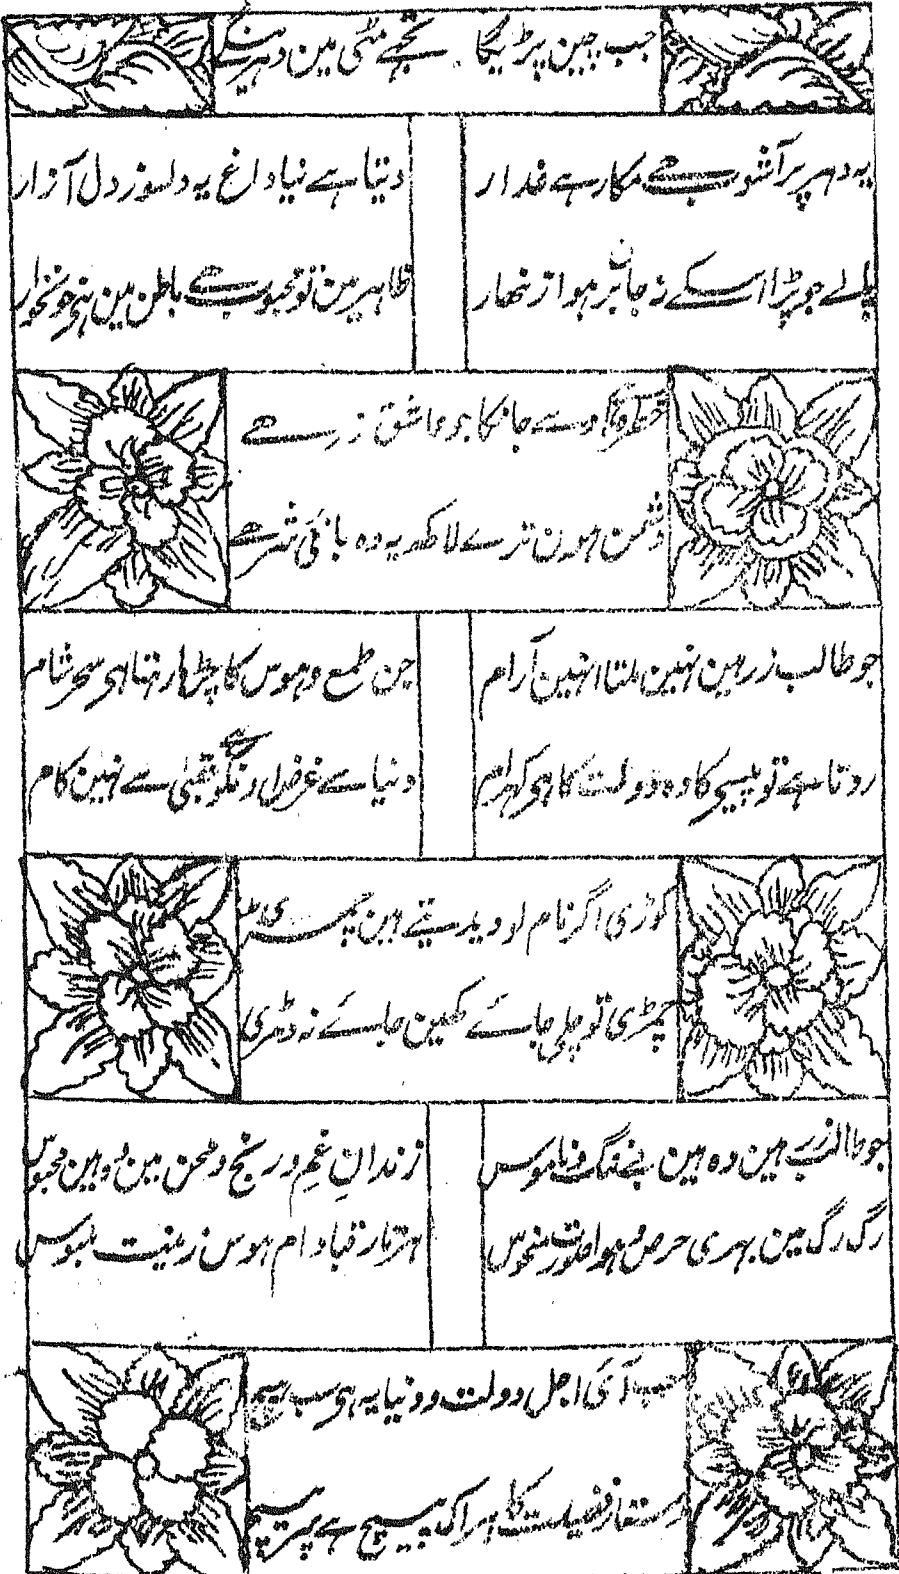 جب چین پڑیگا تجھے مٹی مین دھرینگے
یہ دہر پر آشوب ہے مکار ہے غدار
دیتا ہے نیا داغ یہ دلسوز دل آزار
پالے جو پڑا اسکے نہ جانبر ہوا زنھار
ظاہر مین تو محبوب ہے باطن مین ہی خونخوار
خطرہ اوسے جانکا جو عاشق زر ہے
دشمن ہون ترے لاکھ یہ وہ بانئی شر ہے
جو طالب زر ہین نہین ملتا انہین آرام
جن طمع و ہوس کا چڑھا رہتا ہی سحر شام
رونا ہے تو پیسیکا وہ دولت کا ہی کہرام
دنیا سے غرض اونکو ہے عقبیٰ سے نہین کام
کوڑی اگر نام لو دیدیتے ہین چمڑی
چمڑی تو چلی جائے کہین جائے نہ دمڑی
جو طالب زر ہین وہ ہین بے ننگ و ناموس
زندانِ غم و رنج و محن مین وہین محبوس
رگ رگ مین بہری حرص و ہوا صورت منحوس
ہر تار قبا دام ہوس زینت ملبوس
جب آئی اجل دولت و دنیا یہ ہی سب ہیچ
دستار فضیلت کا ہر اک پیچ ہے پر پیچ